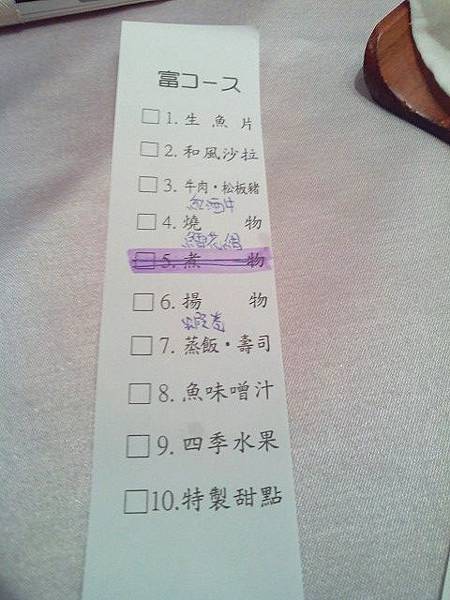 富コース
□ 1. 生魚片
□ 2. 和風沙拉
□ 3. 牛肉・松板豬
□ 4. 燒物
□ 5. 煮物
□ 6. 揚物
□ 7. 蒸飯・壽司
□ 8. 魚味噌汁
□ 9. 四季水果
□ 10. 特製甜點